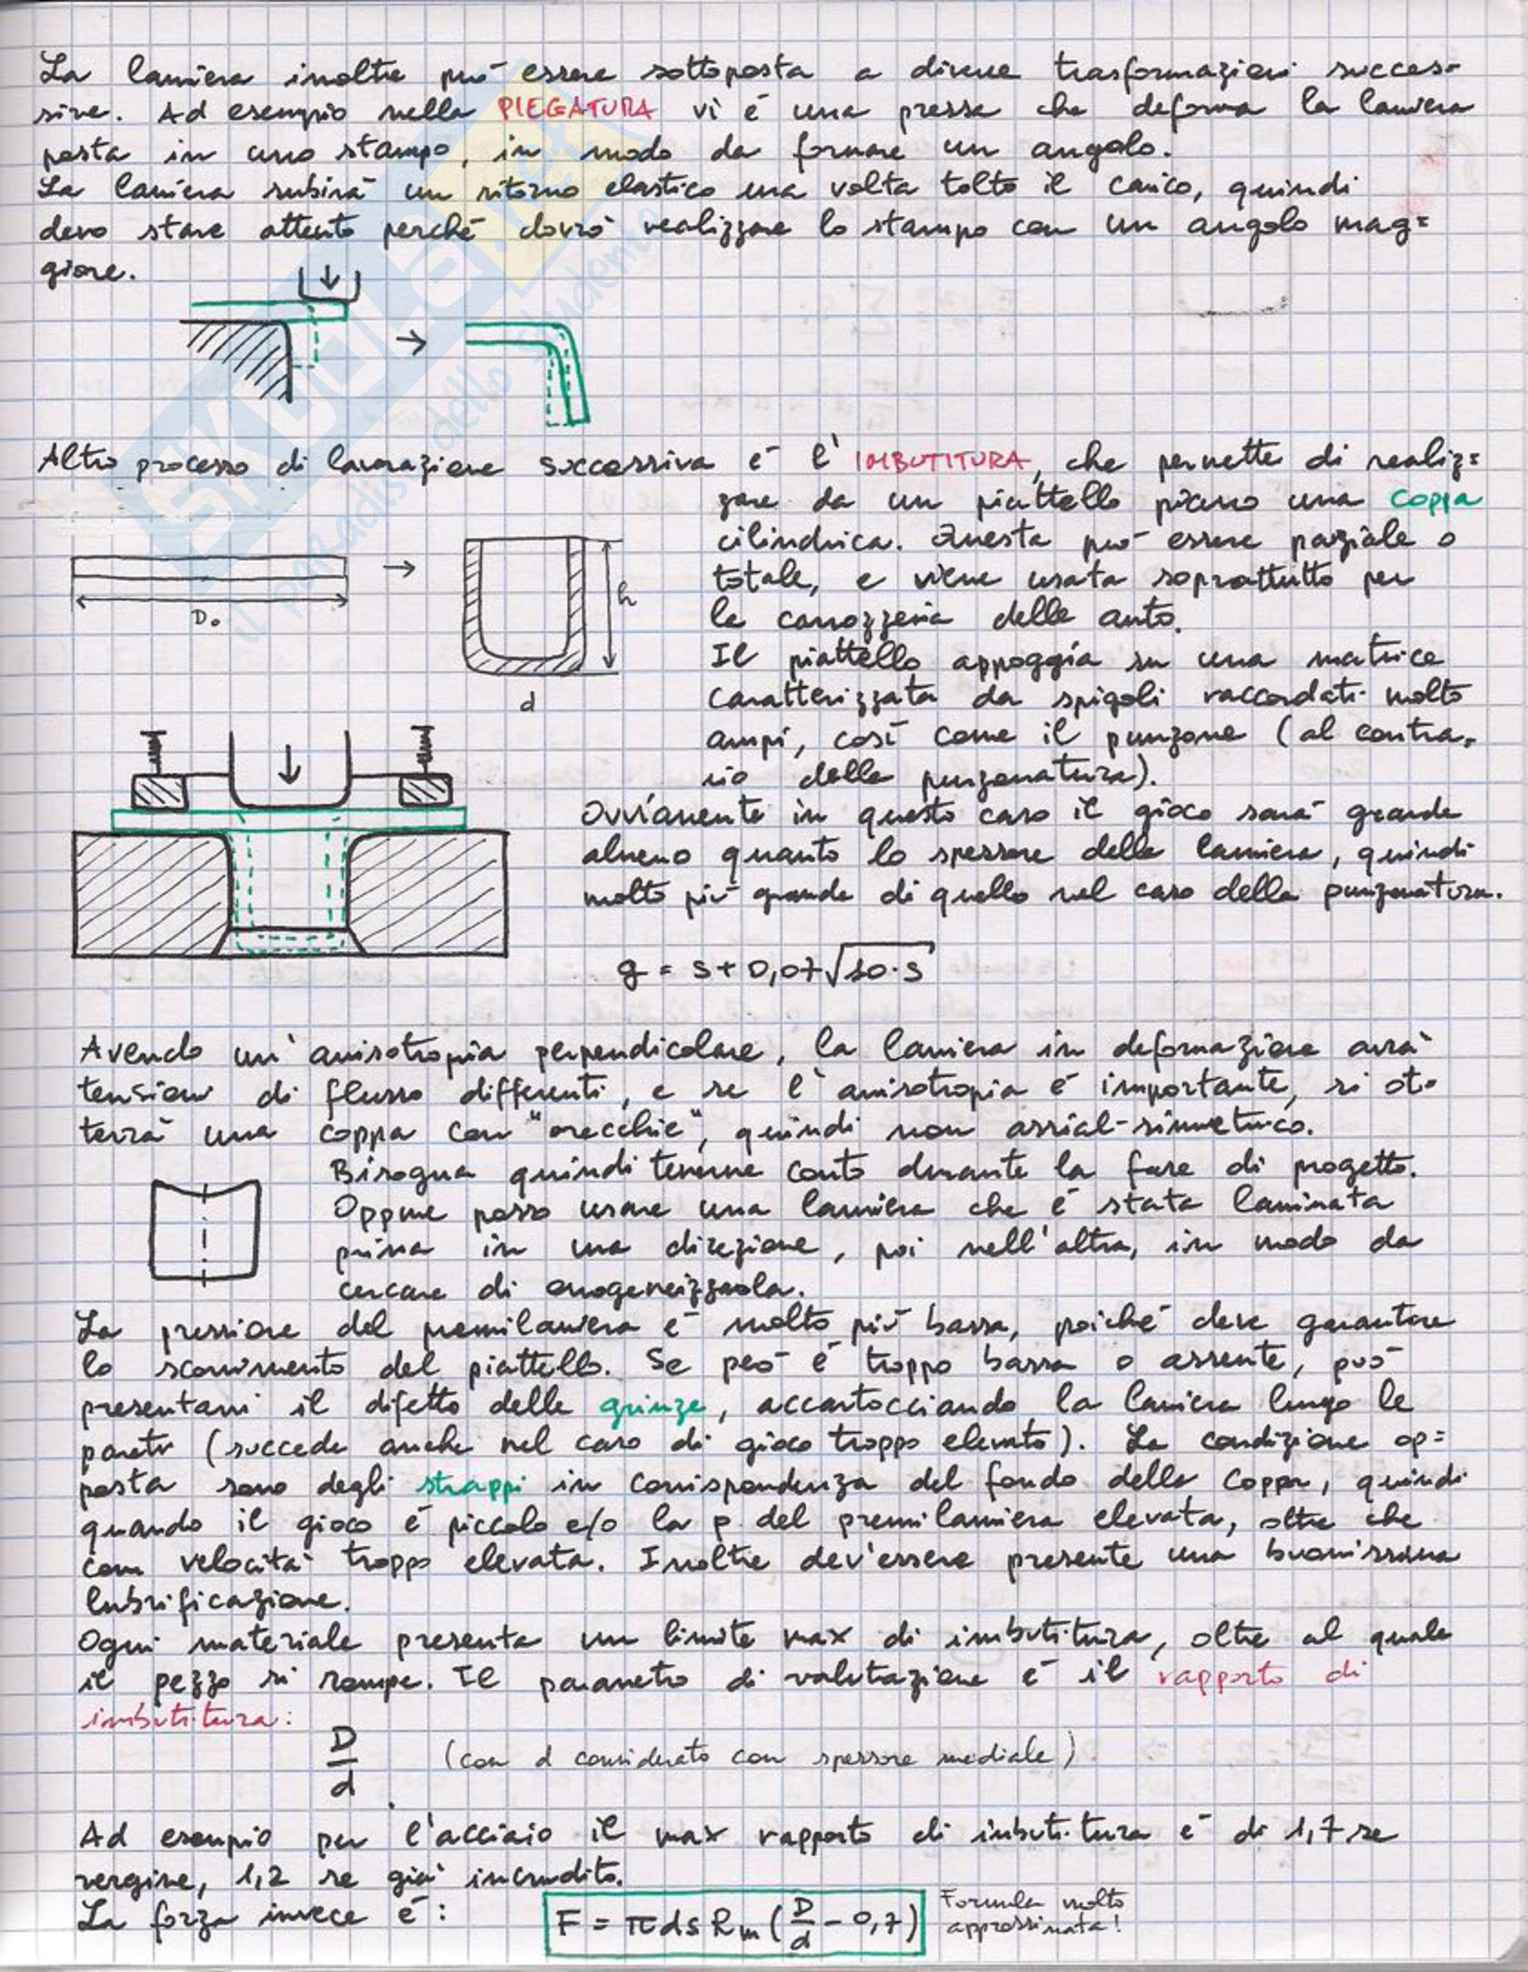 La lamiera inoltre può essere sottoposta a diverse trasformazioni succes-
sive. Ad esempio nella PIEGATURA vi è una pressa che deforma la lamiera
posta in uno stampo, in modo da formare un angolo.
La lamiera subirà un ritorno elastico una volta tolto il carico, quindi
devo stare attento perché dovrò realizzare lo stampo con un angolo mag=
giore.
Altro processo di lavorazione successiva è l'IMBUTITURA, che permette di realiz=
zare da un piattello piano una coppa
cilindrica. Questa può essere parziale o
totale, e viene usata soprattutto per
la carrozzeria delle auto.
D₀
h
d
Il piattello appoggia su una matrice
caratterizzata da spigoli raccordati molto
ampi, così come il punzone (al contra-
rio della punzonatura).
Ovviamente in questo caso il gioco sarà grande
almeno quanto lo spessore della lamiera, quindi
molto più grande di quello nel caso della punzonatura.
g = s + 0,07√10·s
Avendo un'anisotropia perpendicolare, la lamiera in deformazione avrà
tensioni di flusso differenti, e se l'anisotropia è importante, si ot-
terrà una coppa con "orecchie", quindi non assial-simmetrico.
Bisogna quindi tenerne conto durante la fase di progetto.
Oppure posso usare una lamiera che è stata laminata
prima in una direzione, poi nell'altra, in modo da
cercare di omogeneizzarla.
La pressione del premilamiera è molto più bassa, poiché deve garantire
lo scorrimento del piattello. Se però è troppo bassa o assente, può
presentarsi il difetto delle grinze, accartocciando la lamiera lungo le
pareti (succede anche nel caso di gioco troppo elevato). La condizione op=
posta sono degli strappi in corrispondenza del fondo della coppa, quindi
quando il gioco è piccolo e/o la p del premilamiera elevata, oltre che
con velocità troppo elevata. Inoltre dev'essere presente una buonissima
lubrificazione.
Ogni materiale presenta un limite max di imbutitura, oltre al quale
il pezzo si rompe. Il parametro di valutazione è il rapporto di
imbutitura:
D/d (con d considerato con spessore mediale)
Ad esempio per l'acciaio il max rapporto di imbutitura è di 1,7 se
vergine, 1,2 se già incrudito.
La forza invece è: F = π d s Rm (D/d - 0,7) Formula molto
approssimata!